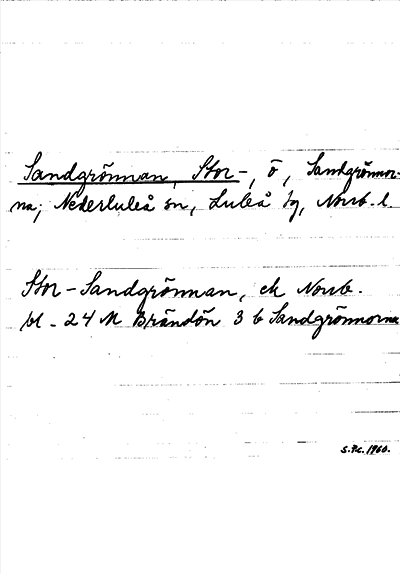 Sandgrönnan, Stor-, ö, Sandgrönnor-
na, Nederluleå sn, Luleå tg, Norrb. l.
Stor-Sandgrönnan, ek Norrb.
bl. 24 M Brändön 3 b Sandgrönnorna
S.F.C. 1960.